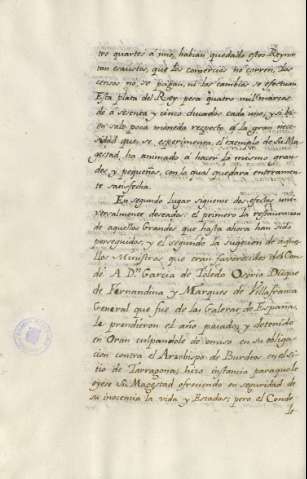 tro quartos à uno, habian quedado estos Reynos
tan exaustos, que los comercios no corren, los
censos no se pagan, ni los cambios se efectuan
Esta plata del Rey pera quatro mil marcos
de à sesenta y cinco ducados cada uno, y si bien
sale poca moneda respecto à la gran nece-
sidad que se esperimenta, el exemplo de Su Ma-
gestad, ha animado à hacer lo mismo gran-
des y pequeños, con la qual quedará enteramen-
te satisfecha.
En segundo lugar siguense dos efectos uni-
versalmente deseados: el primero la restauracion
de aquellos Grandes que hasta ahora han sido
perseguidos; y el segundo la sugecion de aque-
llos Ministros, que eran favorecidos del Con-
de. A Dn. Garcia de Toledo Osorio Duque
de Fernandina y Marques de Villafranca
General que fue de las Galeras de España,
le prendieron el año pasado, y detenido
en Oran culpandole de omiso en su obliga-
cion contra el Arzobispo de Burdeos en el Si-
tio de Tarragona, hizo instancia paraque le
oyese Su Magestad ofreciendo en seguridad de
su inocencia la vida y Estados; pero el Conde
le